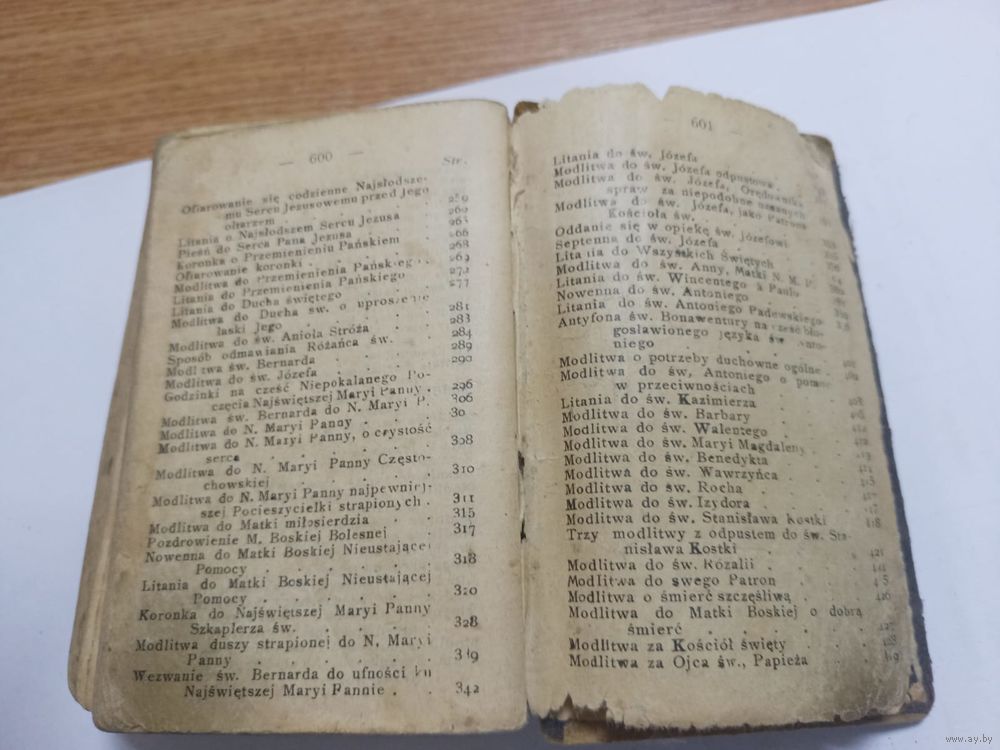 — 600 —
Str.
Ofiarowanie się codzienne Najsłodsze-
mu Sercu Jezusowemu przed Jego
ołtarzem . . . 259
Litania o Najsłodszem Sercu Jezusa 260
Pieśń do Serca Pana Jezusa . .
Koronka o Przemienieniu Pańskiem . 266
Ofiarowanie koronki . . . 268
Modlitwa do Przemienienia Pańskiego . 269
Litania do Przemienienia Pańskiego 272
Litania do Ducha świętego . . 277
Modlitwa do Ducha św. o uproszenie
łaski Jego . . . . 281
Modlitwa do św. Anioła Stróża . 283
Sposób odmawiania Różańca św. . 284
Modl twa św. Bernarda . . . 289
Modlitwa do św. Józefa . . . 290
Godzinki na cześć Niepokalanego Po-
częcia Najświętszej Maryi Panny . 296
Modlitwa św. Bernarda do N. Maryi P. 306
Modlitwa do N. Maryi Panny . . 30
Modlitwa do N. Maryi Panny, o czystość
serca . . . . 308
Modlitwa do N. Maryi Panny Często-
chowskiej . . . . 310
Modlitwa do N. Maryi Panny najpewniej-
szej Pocieszycielki strapionych . 311
Modlitwa do Matki miłosierdzia . . 315
Pozdrowienie M. Boskiej Bolesnej . 317
Nowenna do Matki Boskiej Nieustającej
Pomocy . . . . 318
Litania do Matki Boskiej Nieustającej
Pomocy . . . . 320
Koronka do Najświętszej Maryi Panny
Szkaplerza św. . . . 328
Modlitwa duszy strapionej do N. Maryi
Panny . . . . 339
Wezwanie św. Bernarda do ufności ku
Najświętszej Maryi Pannie . . 342
— 601
Litania do św. Józefa
Modlitwa do św. Józefa odpustowa .
Modlitwa do św. Józefa, Orędownika
spraw za niepodobne uznanych
Modlitwa do św. Józefa, jako Patrona
Kościoła św. .
Oddanie się w opiekę św. Józefowi
Septenna do św. Józefa .
Litania do Wszystkich Świętych .
Modlitwa do św. Anny, Matki N. M. P.
Litania do św. Wincentego à Paulo
Nowenna do św. Antoniego
Litania do św. Antoniego Padewskiego
Antyfona św. Bonawentury na cześć bło-
gosławionego języka św. Anto-
niego . .
Modlitwa o potrzeby duchowne ogólne .
Modlitwa do św. Antoniego o pomoc
w przeciwnościach
Litania do św. Kazimierza
Modlitwa do św. Barbary
Modlitwa do św. Walentego .
Modlitwa do św. Maryi Magdaleny
Modlitwa do św. Benedykta
Modlitwa do św. Wawrzyńca
Modlitwa do św. Rocha .
Modlitwa do św. Izydora .
Modlitwa do św. Stanisława Kostki . 418
Trzy modlitwy z odpustem do św. Sta-
nisława Kostki . 421
Modlitwa do św. Rozalii . .
Modlitwa do swego Patron . .
Modlitwa o śmierć szczęśliwą . . 426
Modlitwa do Matki Boskiej o dobrą
śmierć . . . . 427
Modlitwa za Kościół święty . .
Modlitwa za Ojca św., Papieża .
www.ay.by